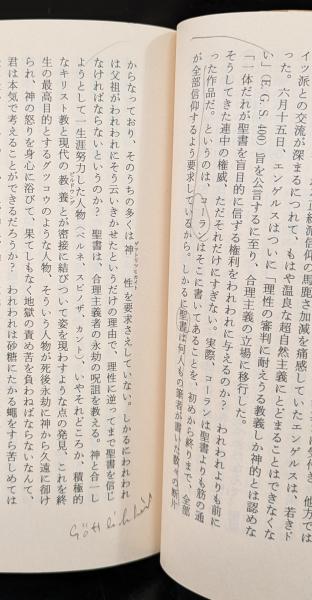 に気付き、他方では
正統派信仰の馬鹿さ加減を痛感していたエンゲルスは、若きド
イツ派との交流が深まるにつれて、もはや温良な超自然主義にとどまることはできなくな
った。六月十五日、エンゲルスはついに「理性の審判に耐えうる教義しか神的とは認めな
い」(E. G. S. 406) 旨を公言するに至り、合理主義の立場に移行した。
「一体だれが聖書を盲目的に信ずる権利をわれわれに与えるのか? われわれよりも前に
そうしてきた連中の権威、ただそれだけにすぎない。実際、コーランは聖書よりも筋の通
った作品だ。というのは、コーランはそこに書いてあることを、初めから終りまで、全部
が全部信仰するよう要求しているから。しかるに聖書は何人もの筆者が書いた数々の断片
からなっており、そのうちの多くは神性を要求さえしていない。しかるにわれわれ
は父祖がわれわれにそう云いきかせたというだけの理由で、理性に逆ってまで聖書を信じ
なければならないというのか? 聖書は、合理主義者の永劫の呪詛を教える。神と合一し
ようとして一生涯努力した人物(ベルネ、スピノザ、カント)、いやそれどころか、積極的
なキリスト教と現代の教養とが密接に結びついて姿を現わすような点の発見、これを終
生の最高目的とするグツコウのような人物、そういう人物が死後永劫に神から久遠に卻け
られ、神の怒りを身心に浴びて、果てしもなく地獄の責め苦を負わねばならないなんて、
君は本気で考えることができるだろうか? われわれは砂糖にたかる蠅をすら苦しめては
Göttlichkeit